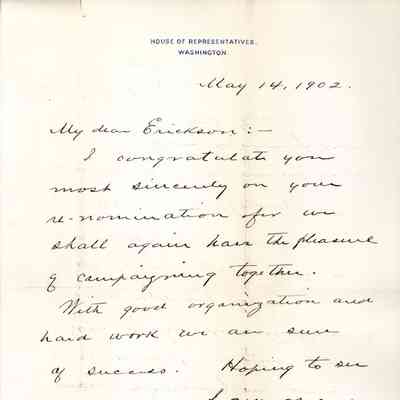 HOUSE OF REPRESENTATIVES.
WASHINGTON.
May 14, 1902.
My dear Erickson:—
I congratulate you
most sincerely on your
re-nomination for we
shall again have the pleasure
of campaigning together.
With good organization and
hard work we are sure
of success. Hoping to see